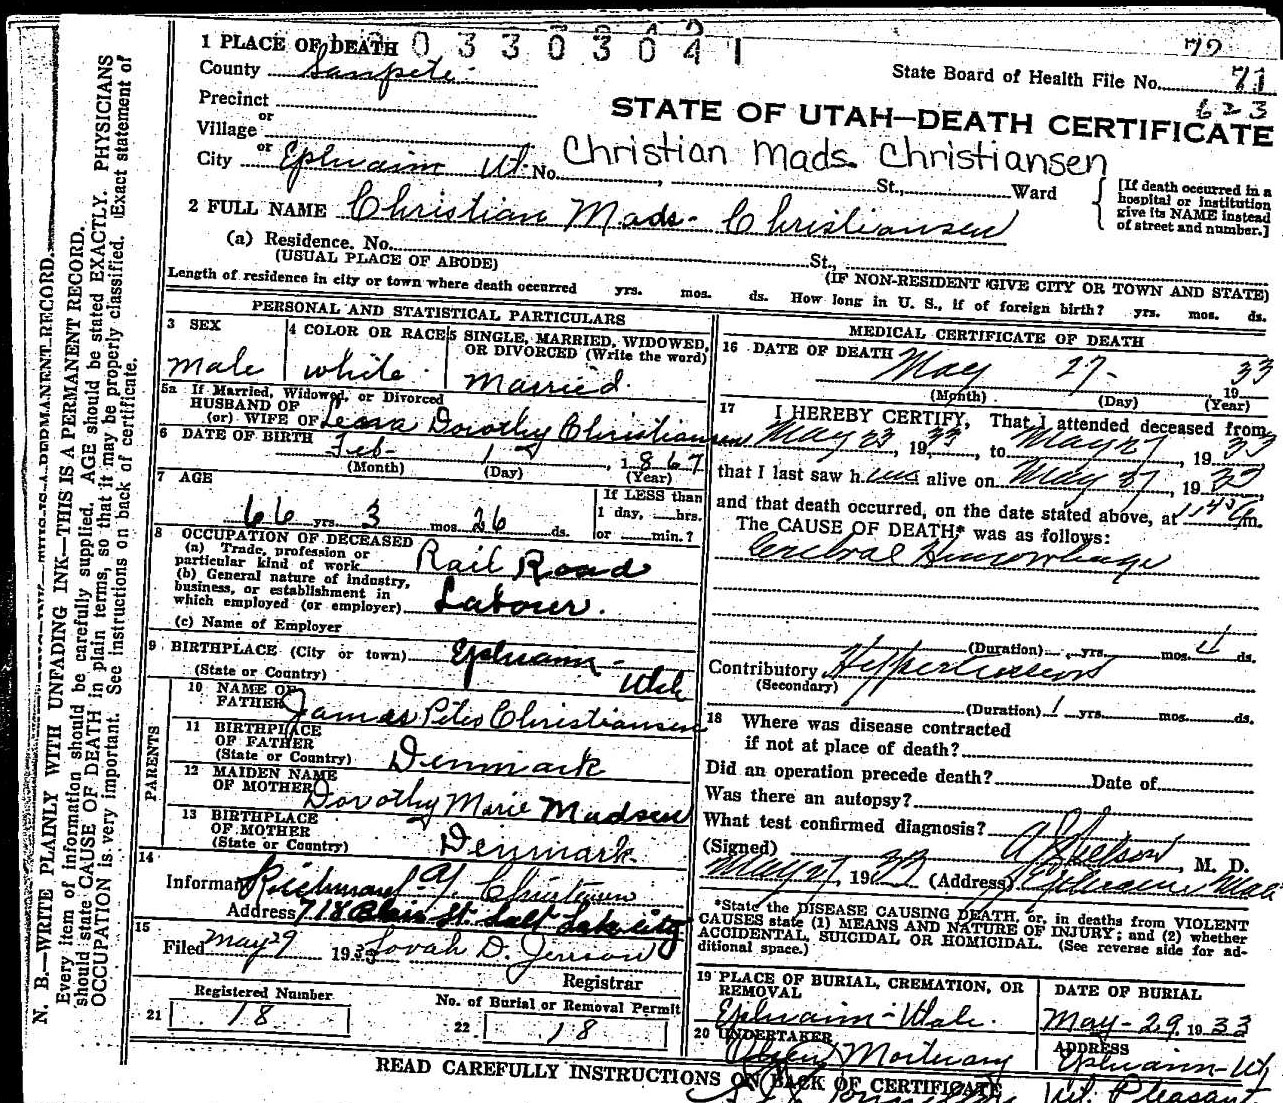 N. B.—WRITE PLAINLY WITH UNFADING INK—THIS IS A PERMANENT RECORD.
Every item of information should be carefully supplied. AGE should be stated EXACTLY. PHYSICIANS
should state CAUSE OF DEATH in plain terms, so that it may be properly classified. Exact statement of
OCCUPATION is very important. See instructions on back of certificate.
1 PLACE OF DEATH 0 3 3 0 3 0 4 1
72
County Sanpete
State Board of Health File No. 71
623
Precinct
or
STATE OF UTAH—DEATH CERTIFICATE
Village
or
Christian Mads. Christiansen
City Ephraim Ut. No. , St., Ward
[If death occurred in a
hospital or institution
give its NAME instead
of street and number.]
2 FULL NAME Christian Mads. Christiansen
(a) Residence. No. St.,
(USUAL PLACE OF ABODE) (IF NON-RESIDENT GIVE CITY OR TOWN AND STATE)
Length of residence in city or town where death occurred yrs. mos. ds. How long in U. S., if of foreign birth? yrs. mos. ds.
PERSONAL AND STATISTICAL PARTICULARS
3 SEX
Male
4 COLOR OR RACE
White
5 SINGLE, MARRIED, WIDOWED,
OR DIVORCED (Write the word)
Married
5a If Married, Widowed, or Divorced
HUSBAND OF
(or) WIFE OF Dorothy Christiansen
6 DATE OF BIRTH Feb- 1 , 1867
(Month) (Day) (Year)
7 AGE
66 yrs. 3 mos. 26 ds.
If LESS than
1 day, hrs.
or min.?
8 OCCUPATION OF DECEASED
(a) Trade, profession or
particular kind of work Rail Road
(b) General nature of industry,
business, or establishment in
which employed (or employer) Labourer.
(c) Name of Employer
9 BIRTHPLACE (City or town) Ephraim-
(State or Country) Utah
PARENTS
10 NAME OF
FATHER James Peter Christiansen
11 BIRTHPLACE
OF FATHER
(State or Country) Denmark
12 MAIDEN NAME
OF MOTHER Dorothy Marie Madsen
13 BIRTHPLACE
OF MOTHER
(State or Country) Denmark
14
Informant Richmond
Address 718 Blair St. Salt Lake City
15
Filed May 29 1933 Lovah D. Jenson
Registrar
Registered Number
21 18
No. of Burial or Removal Permit
22 18
MEDICAL CERTIFICATE OF DEATH
16 DATE OF DEATH May 27- 1933
(Month) (Day) (Year)
17 I HEREBY CERTIFY, That I attended deceased from
May 23, 1933, to May 27, 1933
that I last saw him alive on May 27, 1933,
and that death occurred, on the date stated above, at m.
The CAUSE OF DEATH* was as follows:
Cerebral Hemorrhage
(Duration) yrs. mos. 4 ds.
Contributory Hypertension
(Secondary)
(Duration) 1 yrs. mos. ds.
18 Where was disease contracted
if not at place of death?
Did an operation precede death? Date of
Was there an autopsy?
What test confirmed diagnosis?
(Signed) Nielson, M. D.
May 27, 1933 (Address) Ephraim Utah
*State the DISEASE CAUSING DEATH, or, in deaths from VIOLENT
CAUSES state (1) MEANS AND NATURE OF INJURY; and (2) whether
ACCIDENTAL, SUICIDAL OR HOMICIDAL. (See reverse side for ad-
ditional space.)
19 PLACE OF BURIAL, CREMATION, OR
REMOVAL
Ephraim-Utah.
DATE OF BURIAL
May-29 1933
20 UNDERTAKER
Mortuary
ADDRESS
Ephraim-Ut
READ CAREFULLY INSTRUCTIONS ON BACK OF CERTIFICATE
Mt. Pleasant